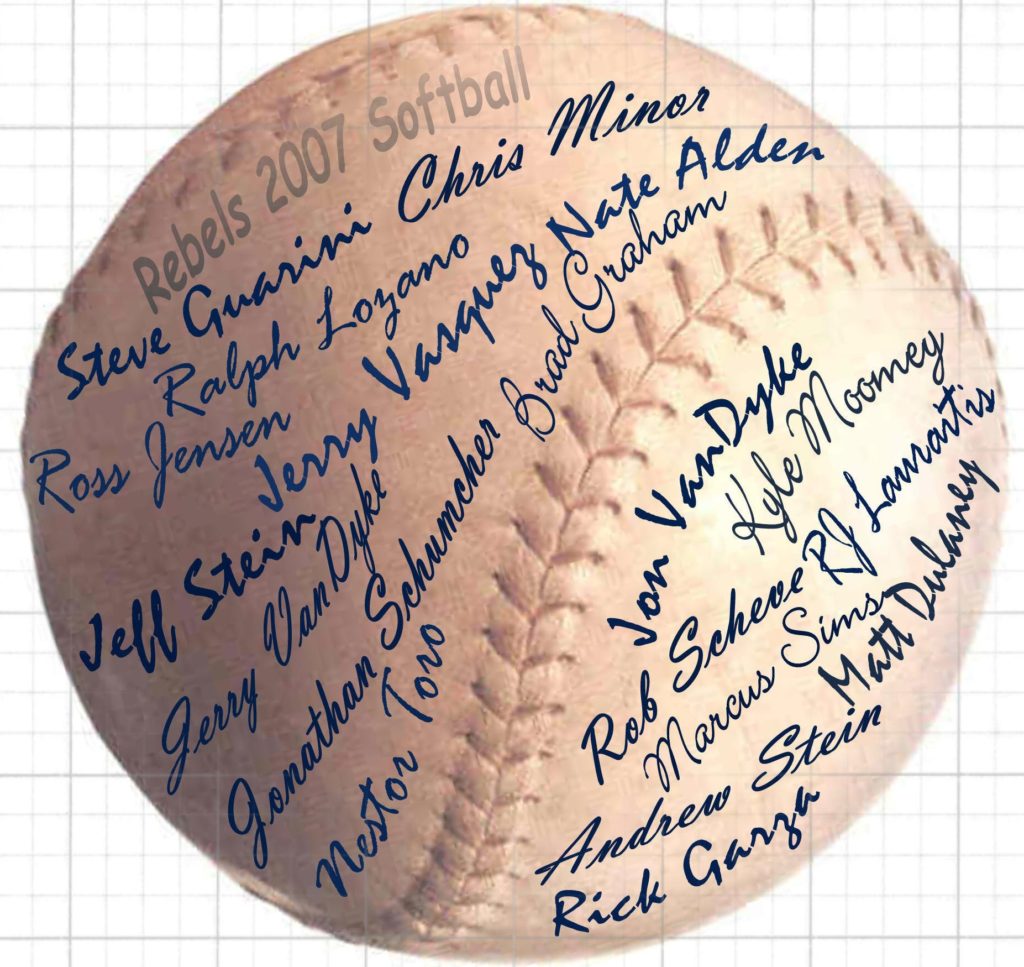 Rebels 2007 Softball
Steve Guarini
Chris Minor
Ralph Lozano
Nate Alden
Ross Jensen
Jerry Vasquez
Brad Graham
Jeff Stein
Jerry VanDyke
Jonathan Schumcher
Nestor Toro
Jon VanDyke
Kyle Moomey
Rob Scheve
RJ Lauraitis
Marcus Sims
Matt Dulaney
Andrew Stein
Rick Garza